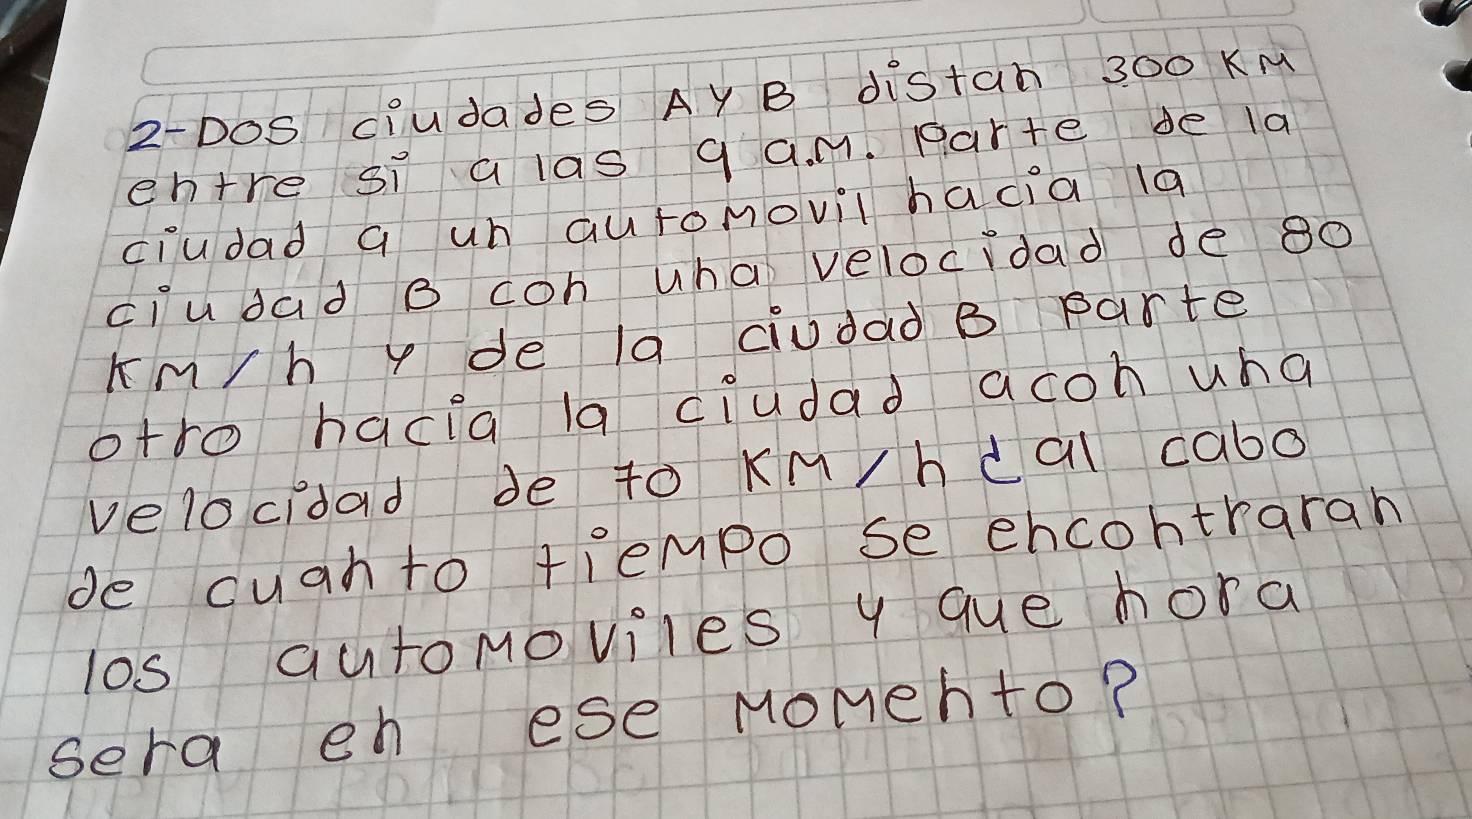 2-Dos ciudades A y B distan 300 KM
entre sí a las 9 a.m. parte de la
ciudad a un automovil hacia la
ciudad B con una velocidad de 80
KM/h y de la ciudad B parte
otro hacia la ciudad a con una
velocidad de 70 KM/h ¿al cabo
de cuanto tiempo se encontraran
los automoviles y que hora
sera en ese momento?